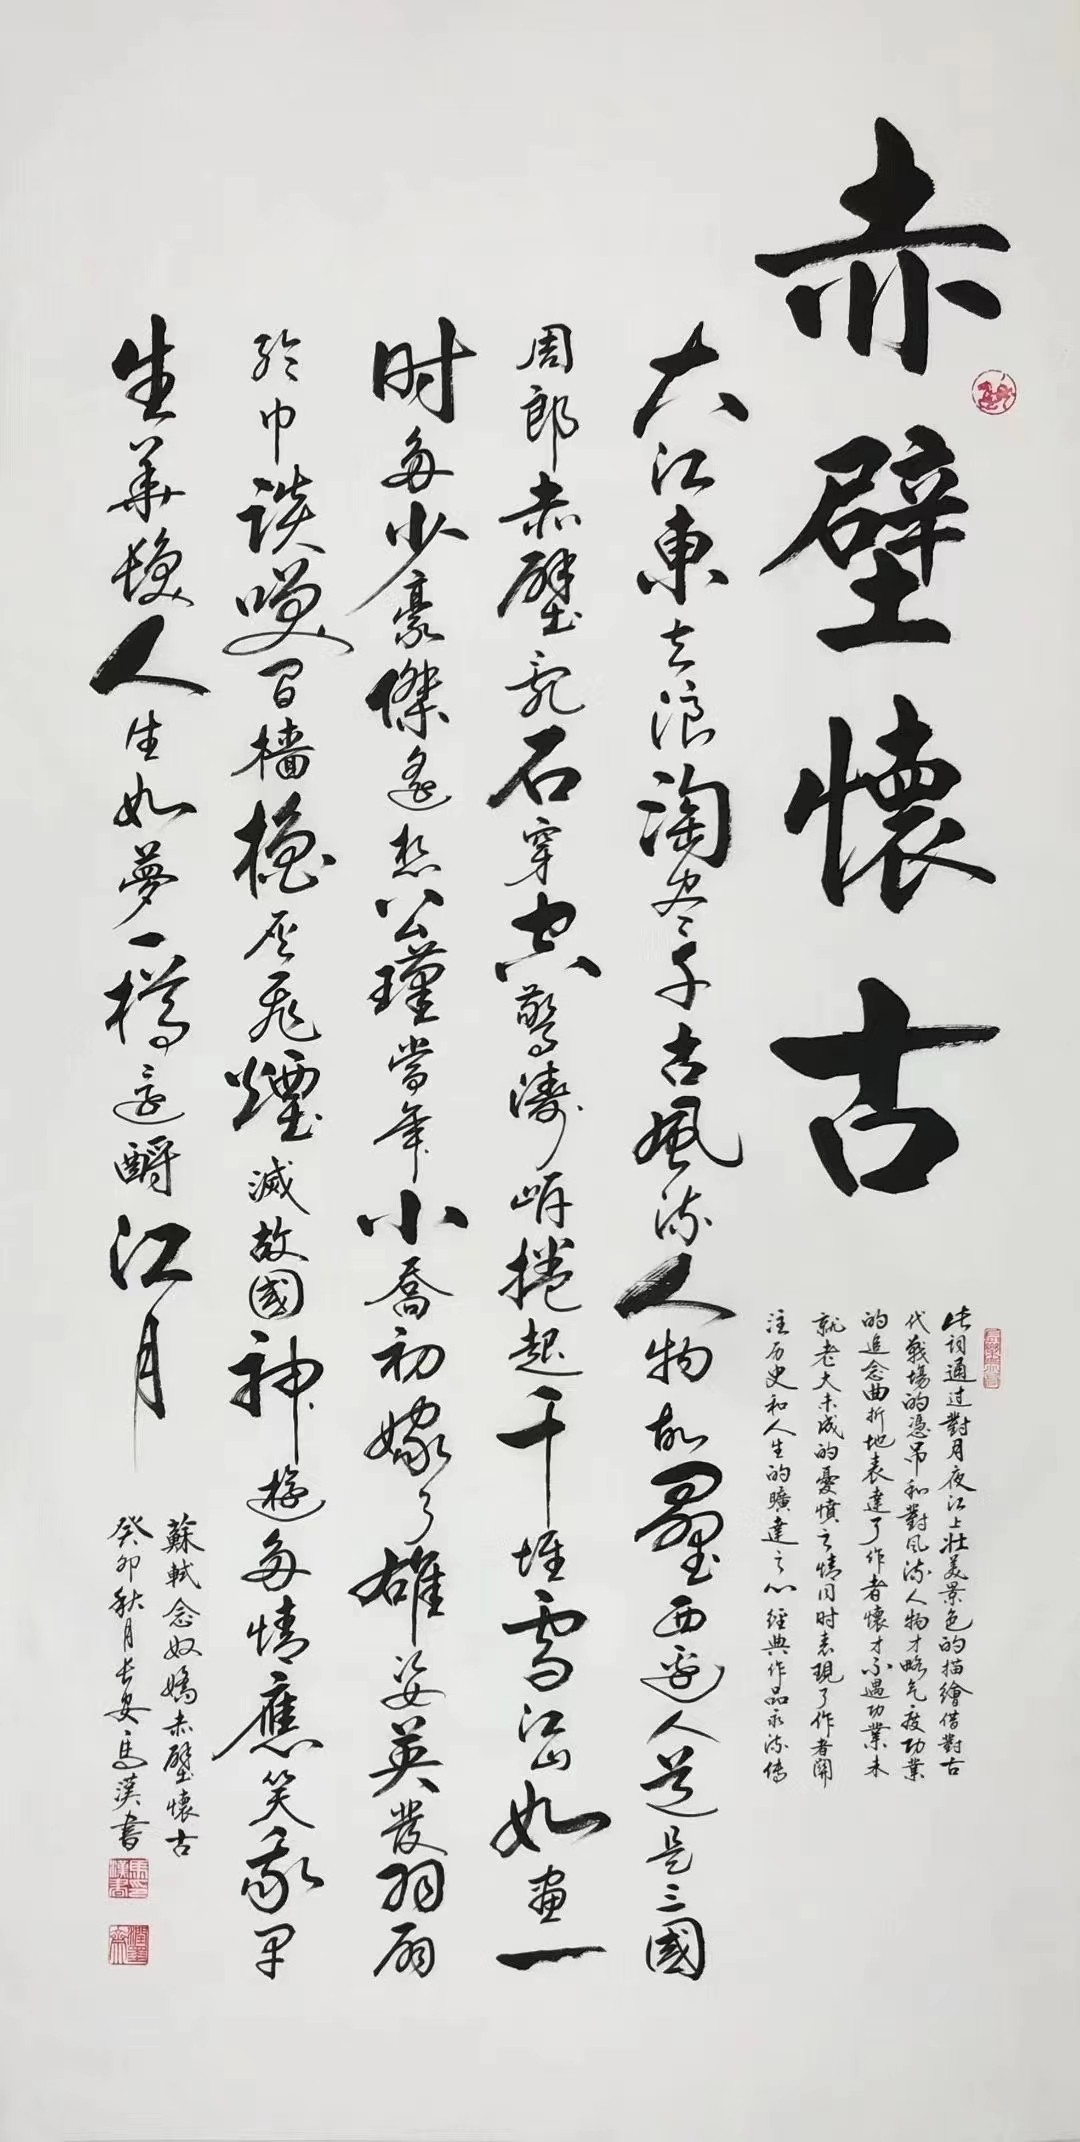 赤壁懷古
此詞通过對月夜江上壯美景色的描繪借對古
代戰場的憑吊和對风流人物才略气度功業
的追念曲折地表達了作者懷才不遇功業未
就老大未成的憂憤之情同时表現了作者關
注历史和人生的曠達之心經典作品永流傳
大江東去浪淘尽千古風流人物故壘西邊人道是三國
周郎赤壁亂石穿空驚濤岸捲起千堆雪江山如畫一
时多少豪傑遙想公瑾當年小喬初嫁了雄姿英發羽扇
綸巾談笑間檣櫓灰飛煙滅故國神遊多情應笑我早
生華髮人生如夢一樽還酹江月
蘇軾念奴嬌赤壁懷古
癸卯秋月長安馬漢書